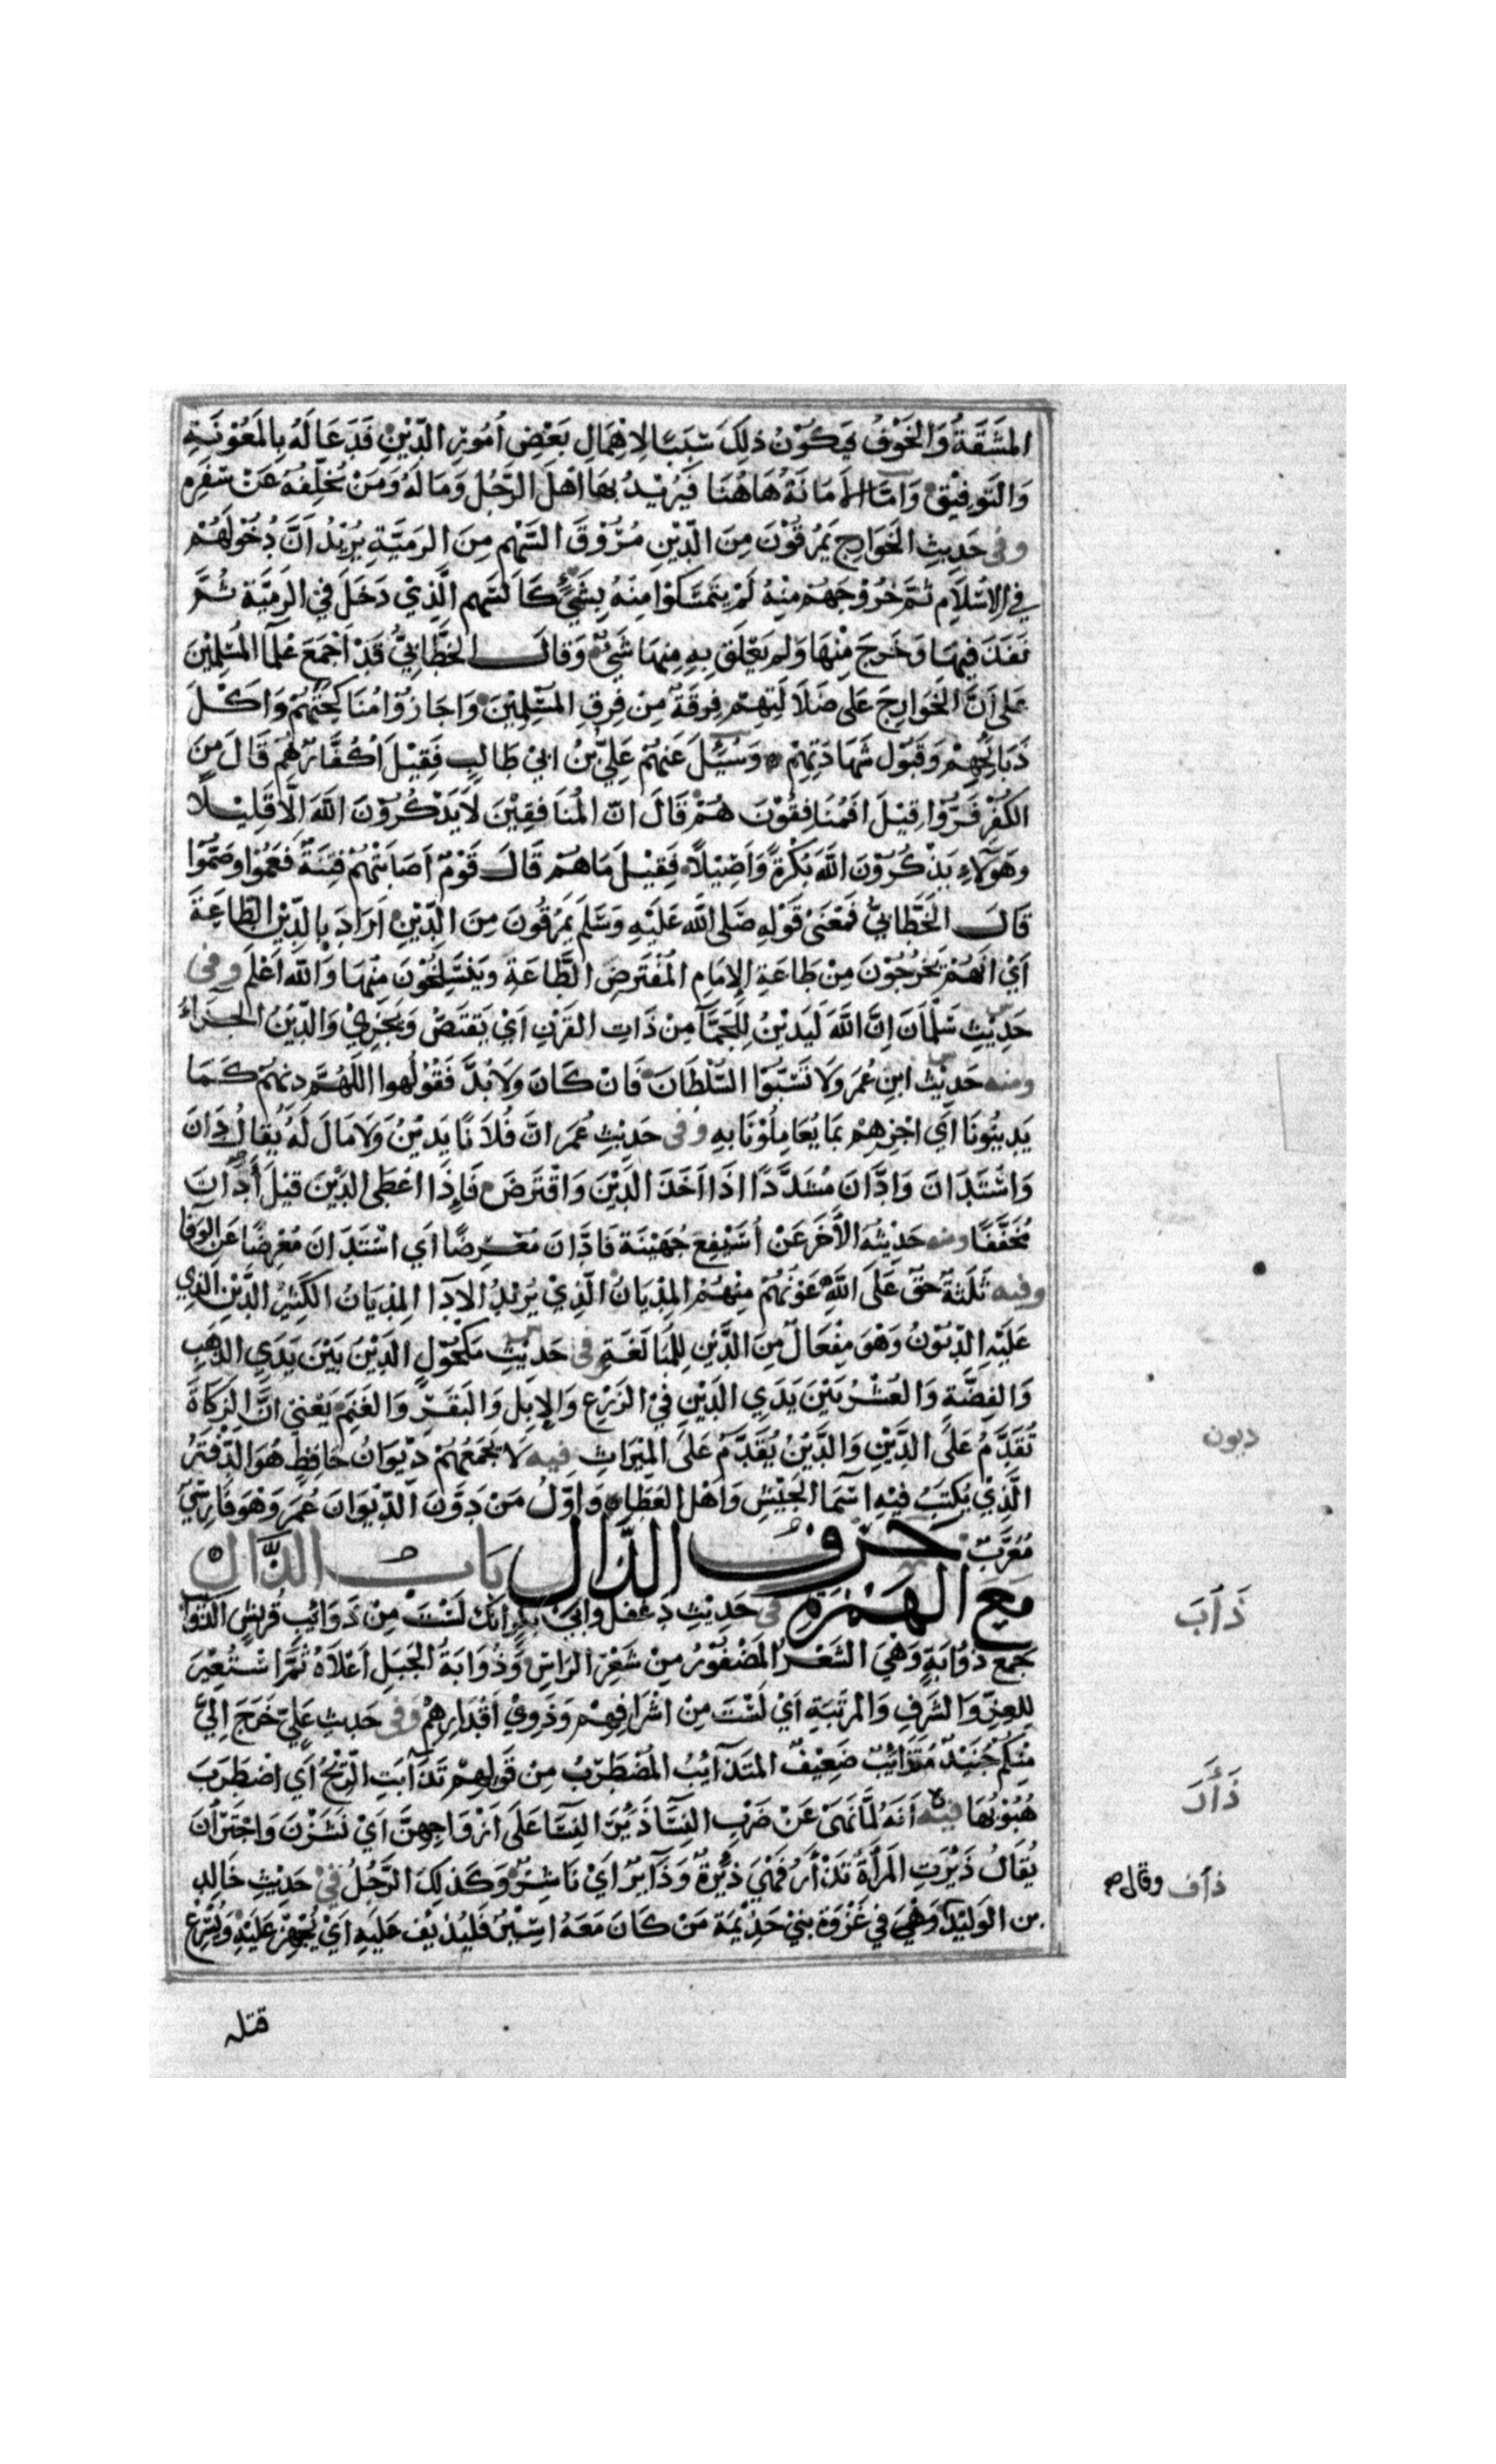 المَشَقَّةُ وَالخَوْفُ فَيَكُوْنُ ذلِكَ سَبَبًا لِاهْمَالِ بَعْضِ اُمُوْرِ الدِّيْنِ فَدَعَا لَهُ بِالمَعُوْنَةِ
وَالتَوفِيْقِ وَامَّا الاَمَانَةُ هَاهُنَا فَيُرِيْدُ بِهَا اَهْلَ الرَّجُلِ وَمَا لَهُ وَمَنْ يُخَلِّفهُ عَنْ سَفَرِهِ
وفى حَدِيثِ الخَوَارِجِ يَمْرُقُوْنَ مِنَ الدِّيْنِ مُرُوْقَ السَّهْمِ مِنَ الرَمِيَّةِ يُرِيْدُ اَنَّ دُخُوْلَهُمْ
فِي الاِسْلَامِ ثُمَّ خُرُوْجَهُمْ مِنْهُ لَمْ يَتَمَسَّكُوْا مِنْهُ بِشَيْءٍ كَالسَّهِم الَّذِيْ دَخَلَ فِي الرَمِيَّةِ ثُمَّ
نَفَدَ فِيهَا وَخَرَجَ مِنْهَا وَلم يَعْلَق بِهِ مِنهَا شَيْءٌ وَقَالَ الخَطَّابِيُّ قَدْ اَجْمَعَ عُلَمَا المُسْلِمِيْنَ
عَلى اَنَّ الخَوَارِجَ عَلى ضَلَالَتِهِمْ فِرقَةٌ مِنْ فِرَقِ المُسْلِمِيْنَ وَاجَازُوْا مُنَاكَحَتَهُمْ وَاَكْلَ
ذَبَائِحِهِمْ وَقَبُوْلَ شَهَادَتِهِمْ وَسُئِلَ عَنْهُمْ عَلِيُّ بْنُ ابِيْ طَالِبٍ فَقِيْلَ اَكُفَّارٌ هُمْ قَالَ مِنَ
الكُفْرِ فَرُّوْا قِيْلَ افَمُنَافِقُوْنَ هُمْ قَالَ انّ المُنَافِقِيْنَ لَايَذْكُرُوْنَ اللهَ اِلَّا قَلِيْلًا
وَهَوُلَاءِ يَذْكُرُوْنَ اللهَ بُكْرَةً وَّاَصِيْلًا فَقِيْلَ مَاهُمْ قَالَ قَوْمٌ اَصَابَتْهُمْ فِتْنَةٌ فَعَمُوْا وصَمُّوْا
قَالَ الخَطَّابِيُّ فَمَعْنَى قَوْلِهِ صَلَّى اللهُ عَلَيْهِ وَسَلَّمَ يَمْرُقُونَ مِنَ الدِّيْنِ اَرَادَ بِالدِّيْنِ الطَّاعَةَ
اَيْ انَّهُمْ يَخْرُجُوْنَ مِنْ طَاعَةِ الاِمَامِ المُفْتَرَضِ الطَّاعَةِ وَيَنْسَلِخُوْنَ مِنْهَا وَاللهُ اَعْلَم وفى
حَدِيْثِ سَلْمَانَ اِنَّ اللهَ لَيَدِيْنُ لِلجَمَّا مِنْ ذَاتِ القَرْنِ اَيْ يَقْتَصّ وَيَجْزِيْ وَالدِّيْنُ الجَزَاءُ
ومنه حَدِيْثُ ابنِ عُمَرَ وَلَا تَسُبُّوْا السُّلْطَانَ فَانْ كَانَ وَلَابُدَّ فَقُوْلُوا اللّهُمَّ دِنْهُمْ كَمَا
يَدِينُونَا اَي اجْزِهِمْ بَمَا يُعَامِلُوْنَا بِهِ وفى حَدِيْثِ عُمَرَ انَّ فُلَانًا يَدِيْنُ وَلَا مَالَ لَهُ يُقَالُ دَانَ
وَاسْتَدَانَ وَادَّانَ مُشَدَّدًا اذَا اَخَذَ الدَّيْنَ وَاقْتَرَضَ فَاِذَا اعْطَى الدَّيْنَ قِيْلَ اَدَانَ
مُخَفَّفًا ومنه حَدِيْثُهُ الآخَرُ عَنْ اُسَيْفِعِ جُهَيْنَةَ فَادَّانَ مُعْرِضًا اَي اسْتَدَانَ مُعْرِضًا عَنِ الوَفَا
وفيه ثَلَثَةٌ حَقٌّ عَلَى اللهِ عَوْنُهُمْ مِنْهُمْ المِدْيَانُ الَّذِيْ يُرِيْدُ الاَدَآ المِدْيَانُ الكَثِيْرُ الدَّيْنِ الذِي
عَلَيْهِ الدُّيُوْنُ وَهُوَ مِفْعَالٌ مِنَ الدَّيْنِ لِلمُبَالَغَةِ فى حَدِيْثِ مَكْحُوْلٍ الدَيْنُ بَيْنَ يَدَيِ الذَهَبِ
وَالفِضَّةِ وَالعُشْرُ بَيْنَ يَدَيِ الدَيْنِ فِيْ الزَرْعِ وَالاِبِلِ وَالبَقَرِ وَالغَنَمِ يَعْنِي انَّ الزَكَاةَ
تُقَدَّمُ عَلَى الدَيْنِ وَالدَّيْنُ يُقَدَّمُ عَلَى المِيْرَاثِ فيه لَا يَجْمَعُهُمْ دِيْوَانُ حَافِظٍ هُوَ الدَّفْتَرُ
الَّذِيْ يُكْتَبُ فِيْهِ اسْمَا الجَيْشِ وَاهْلِ العَطَاءِ وَاوّلُ مَنْ دَوَّنَ الدِّيْوَانَ عُمَرُ وَهُوَ فَارِسِيٌّ
مُعَرَّبٌ حَرْفُ الذَّال بَابُ الذَّال
مَعَ الهَمْزَةِ فى حَدِيْثِ دَغْفَلٍ وَابِيْ بَكْرٍ انَّكَ لَسْتَ مِنْ ذَوَائِبِ قُرَيْشٍ الذَوَا
جَمْعُ ذُوَابَةٍ وَهْيَ الشَعْرُ المَضْفُوْرُ مِنْ شَعْرِ الرَاسِ وَذُوَابَةُ الجَبَلِ اَعْلَاهُ ثُمَّ اسْتُعِيْرَ
لِلعِزِّ وَالشَرَفِ وَالمَرْتَبَةِ اَيْ لَسْتَ مِنْ اشْرَافِهِمْ وَذَوِيْ اَقْدَارِهِمْ وفى حَديثِ عَلِيٍّ خَرَجَ اِلَيَّ
مِنْكُمْ جُنَيْدٌ مُتَذَائِبٌ ضَعِيْفٌ المُتَذَآئِبُ المُضْطَرِبُ مِنْ قَوْلِهِمْ تَذَآبَتِ الرِّيْحُ اَي اضْطَرَبَ
هُبُوْبُهَا فيه اَنَّهُ لَمَّا نَهَى عَنْ ضَرْبِ النِسَّا ذَئِرَ النِسَّا عَلَى اَزْوَاجِهِنَّ اَيْ نَشَزْنَ وَاجْتَرَأْنَ
يُقَالُ ذَئِرَتِ المَرْاَةُ تَذْأَرُ فَهْيَ ذَئِرَةٌ وَذَآئِرٌ اَيْ نَاشِزٌ وَكَذلِكَ الرَّجُلُ فى حَدِيْثِ خَالِدِ
بن الوَلِيْدِ وَهْيَ فِي غَزْوَةِ بَنِيْ جَذِيْمَةَ مَنْ كَانَ مَعَهُ اسِيْرٌ فَلْيُذْئِف عَلَيْهِ اَيْ يُجْهِزْ عَلَيْهِ وَيُسْرِعْ
ديون
ذَأَبَ
ذَأَرَ
ذأف وقال
قتله